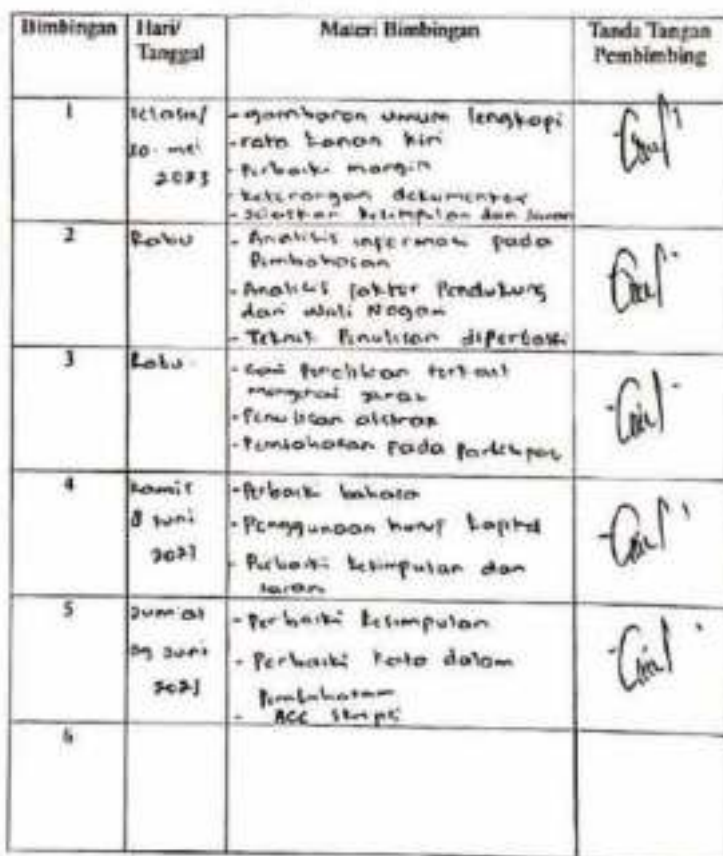 Bimbingan Hari/ Tanggal Materi Bimbingan Tanda Tangan Pembimbing
1
Selasa/
30 mei
2023
- gambaran umum lengkapi
- rata kanan kiri
- Perbaiki margin
- keterangan dokumentasi
- kesimpulan dan saran
2
Rabu
- Analisis informasi pada
Pembahasan
- Analisis faktor Pendukung
dari Wali Nagari
- Teknik Penulisan diperbaiki
3
Rabu
- Penelitian terkait
mengenai
- Penulisan abstrak
- Pembahasan pada
4
Kamis
8 Juni
2023
- Perbaiki bahasa
- Penggunaan huruf kapital
- Perbaiki kesimpulan dan
saran
5
Jum'at
09 Juni
2023
- Perbaiki kesimpulan
- Perbaiki kata dalam
Pembahasan
- ACC Skripsi
6